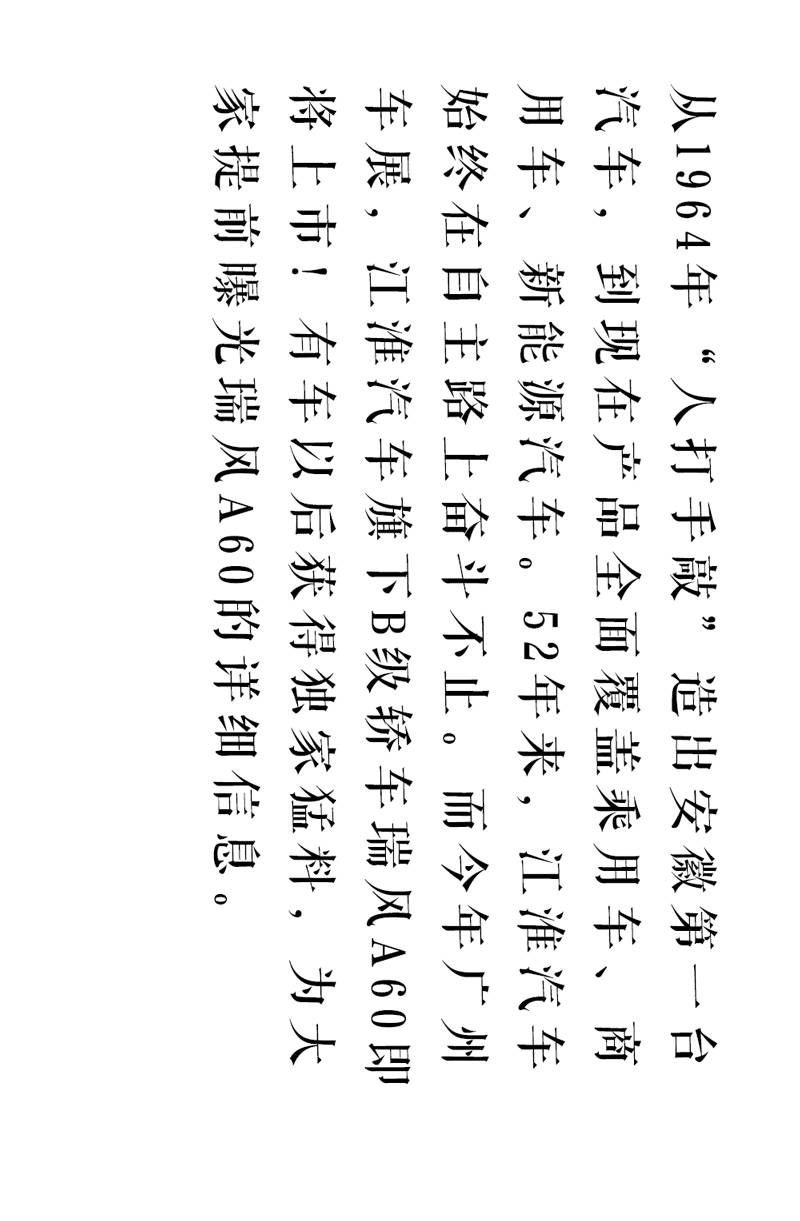 从1964年“人打手敲”造出安徽第一台
汽车，到现在产品全面覆盖乘用车、商
用车、新能源汽车。52年来，江淮汽车
始终在自主路上奋斗不止。而今年广州
车展，江淮汽车旗下B级轿车瑞风A60即
将上市！有车以后获得独家猛料，为大
家提前曝光瑞风A60的详细信息。